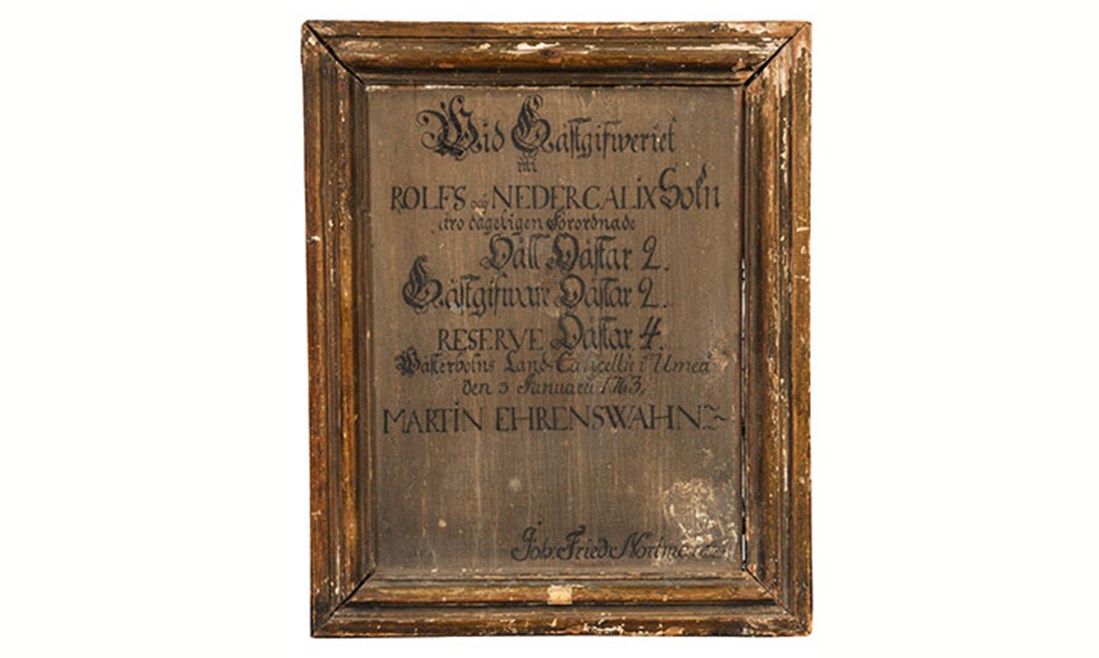 Wid Gästgifweriet
uti
ROLFS och NEDERCALIX Sokn
äro dageligen förordnade
Håll Hästar 2.
Gästgifware Hästar 2.
RESERVE Hästar 4.
Wästerbotns Land-Cancellie i Umeå
den 5 Januarii 1763.
MARTIN EHRENSWAHN
Joh: Fried: